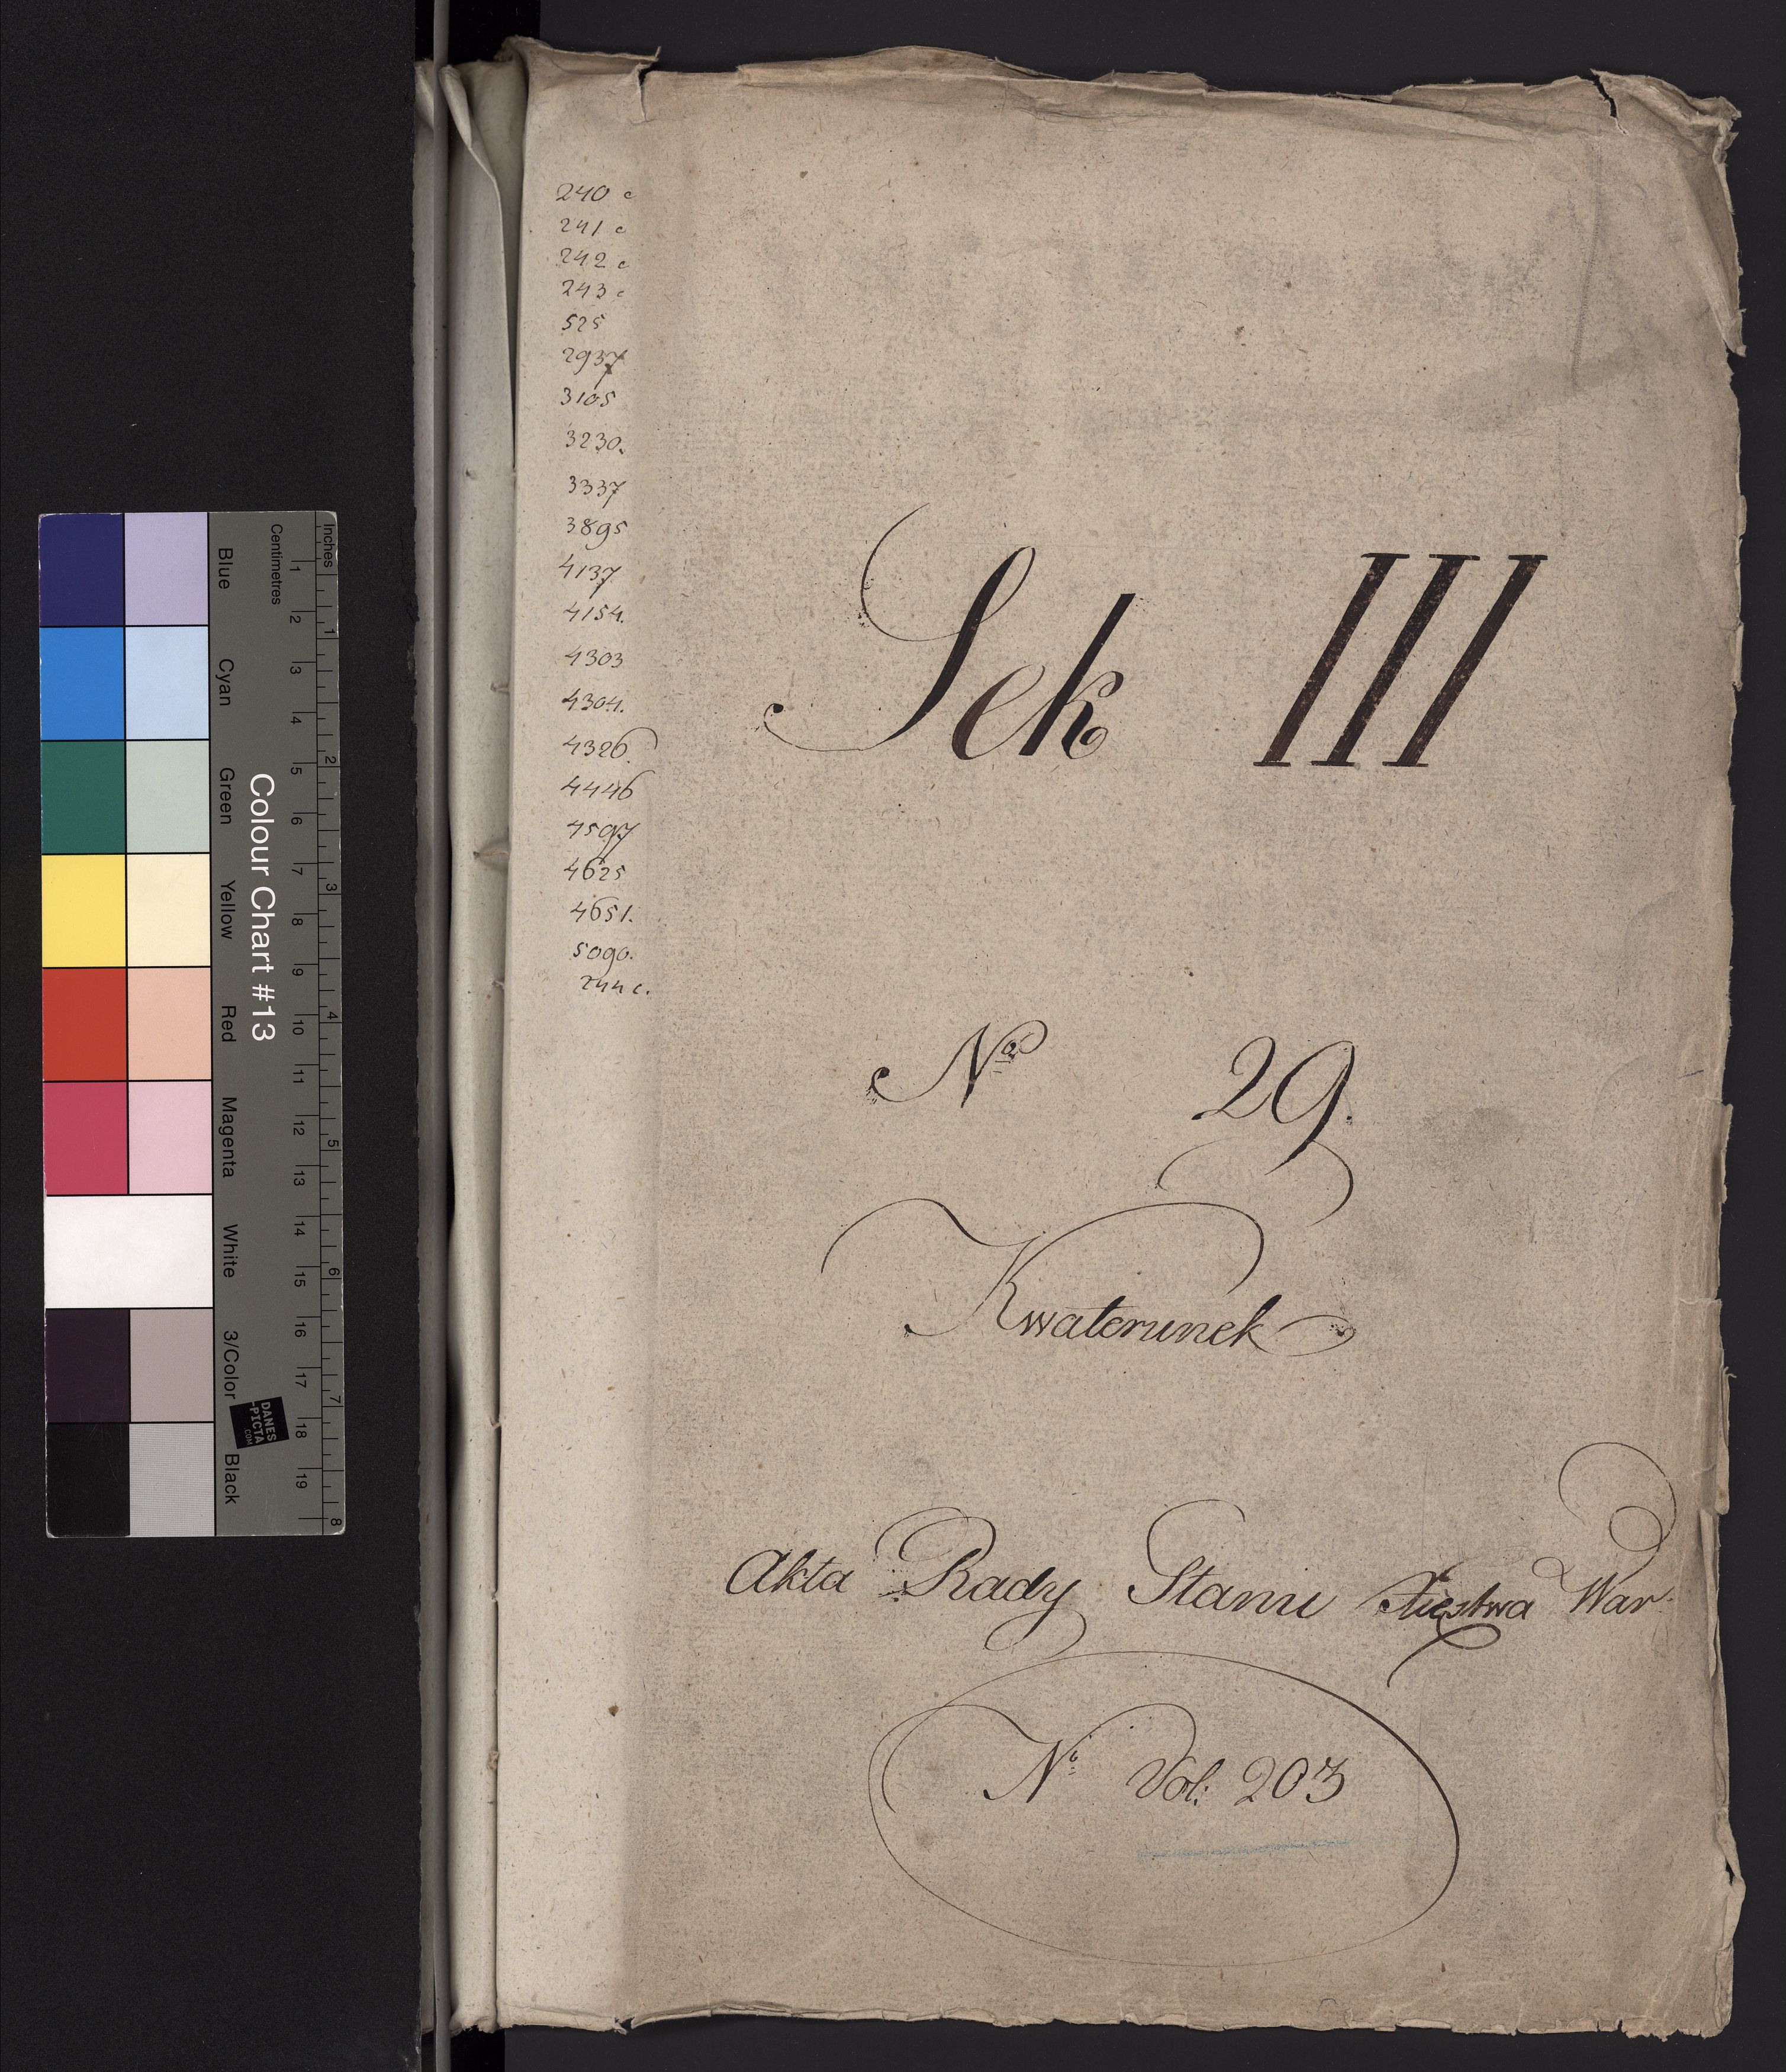 240 c
241 c
242 c
243 c
525
2937
3105
3230.
3337
3895
4137
4154.
4303
4304.
4326.
4446
4597
4625
4651.
5090.
244 c.
Sek III
No 29.
Kwaterunek
Akta Rady Stanu Xięstwa War.
No Vol: 203
Colour Chart #13
Blue Cyan Green Yellow Red Magenta White 3/Color Black
Centimetres
1 2 3 4 5 6 7 8 9 10 11 12 13 14 15 16 17 18 19
Inches
1 2 3 4 5 6 7 8
DANES
-PICTA
.COM